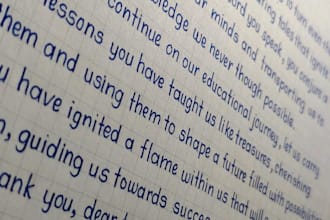 to turn
tales that ignite
word you speak, you conjure
r minds and transporting
ledge we never though possible.
continue on our educational journey, let us carry
lessons you have taught us like treasures, cherishing
hem and using them to shape a future filled with possibilit
u have ignited a flame within us that will
n, guiding us towards succe
ank you, dear t